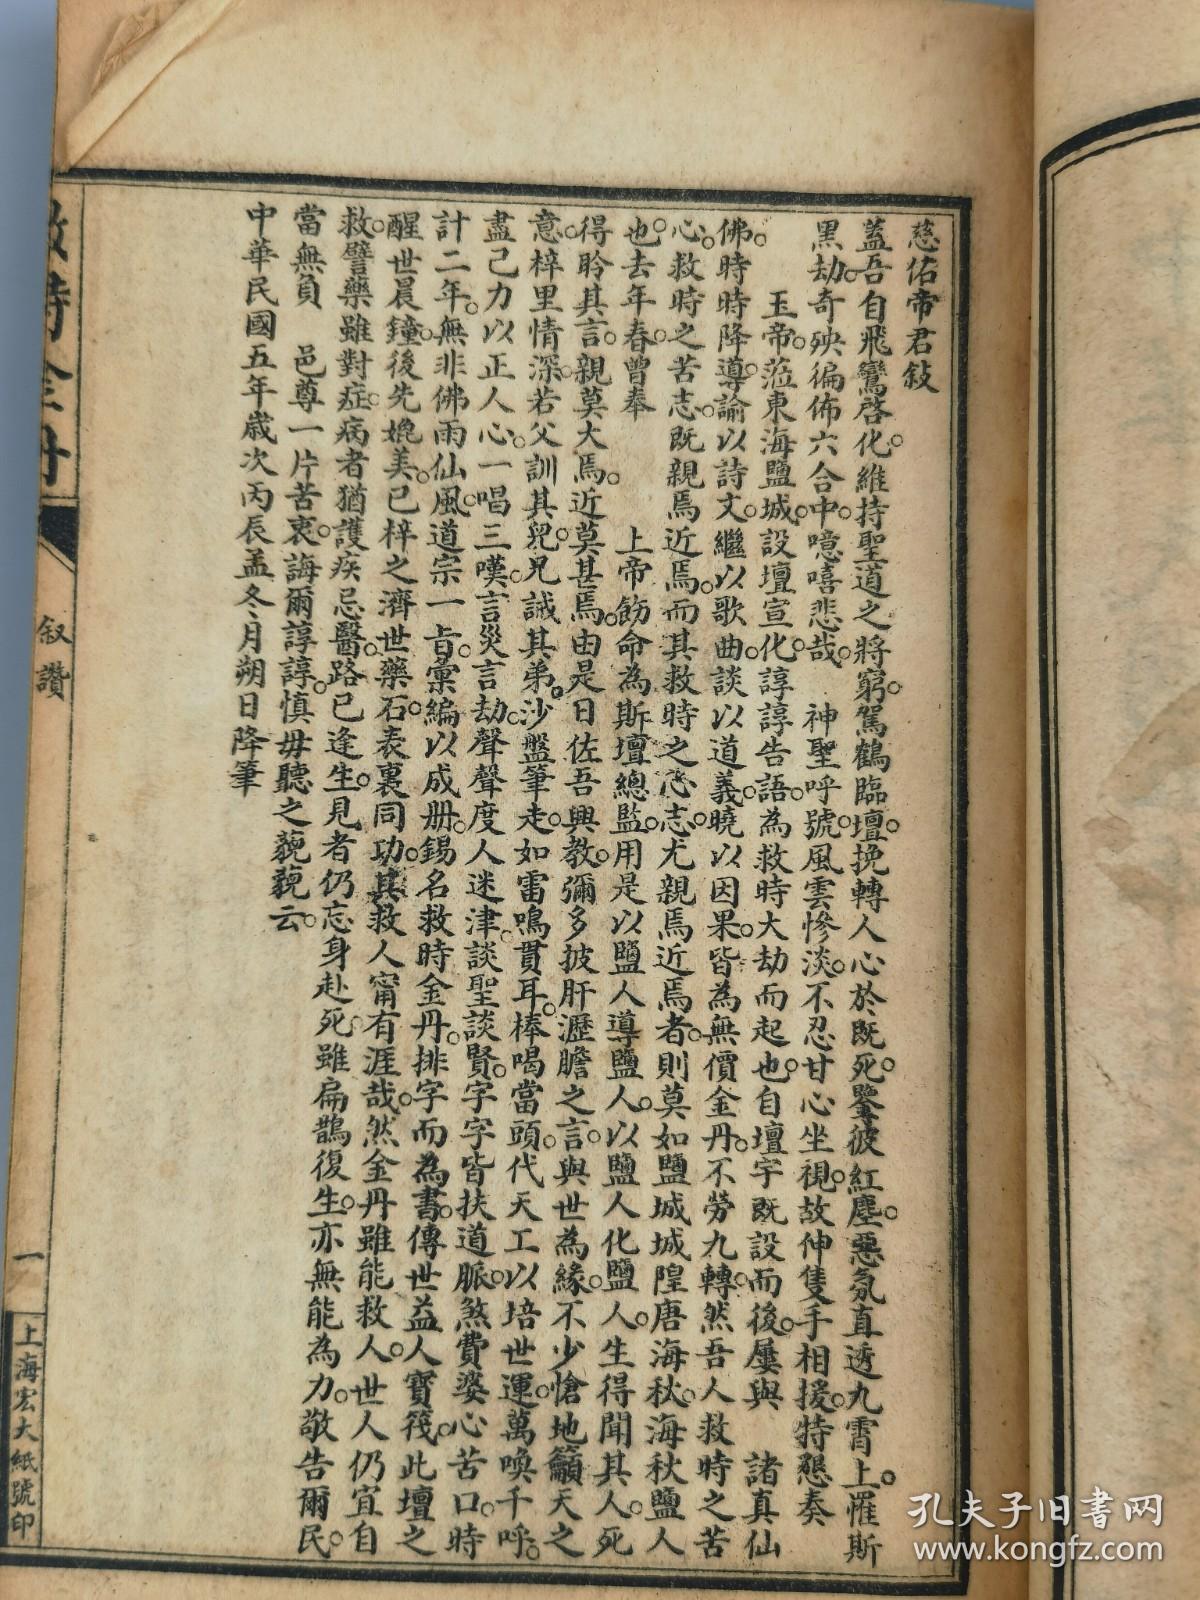 慈佑帝君敍
蓋吾自飛鸞啓化。維持聖道之將窮。駕鶴臨壇。挽轉人心於既死。鑒彼紅塵。惡氛直透九霄上。罹斯
黑劫。奇殃徧佈六合中。噫嘻悲哉。 神聖呼號。風雲慘淡。不忍甘心坐視。故伸隻手相援。特懇奏
玉帝。蒞東海鹽城。設壇宣化。諄諄告語。為救時大劫而起也。自壇宇既設而後。屢與 諸真仙
佛。時時降導。諭以詩文。繼以歌曲。談以道義。曉以因果。皆為無價金丹。不勞九轉。然吾人救時之苦
心。救時之苦志。既親焉近焉。而其救時之心志。尤親焉近焉者。則莫如鹽城城隍唐海秋。海秋鹽人
也。去年春曾奉 上帝飭命為斯壇總監。用是以鹽人導鹽人。以鹽人化鹽人。生得聞其人。死
得聆其言。親莫大焉。近莫甚焉。由是日佐吾興教。彌多披肝瀝膽之言。與世為緣。不少愴地籲天之
意。梓里情深。若父訓其兒。兄誡其弟。沙盤筆走。如雷鳴貫耳。棒喝當頭。代天工以培世運。萬喚千呼。
盡己力以正人心。一唱三嘆。言災言劫。聲聲度人迷津。談聖談賢。字字皆扶道脈。煞費婆心苦口。時
計二年。無非佛雨仙風。道宗一旨。彙編以成册。錫名救時金丹。排字而為書。傳世益人寶筏。此壇之
醒世晨鐘。後先媲美。已梓之濟世藥石。表裏同功。其救人甯有涯哉。然金丹雖能救人。世人仍宜自
救。譬藥雖對症。病者猶護疾忌醫。路已逢生。見者仍忘身赴死。雖扁鵲復生。亦無能為力。敬告爾民。
當無負 邑尊一片苦衷。誨爾諄諄。慎毋聽之藐藐云。
中華民國五年歲次丙辰孟冬月朔日降筆
救時金丹
叙讚
一
上海宏大紙號印
孔夫子旧书网
www.kongfz.com